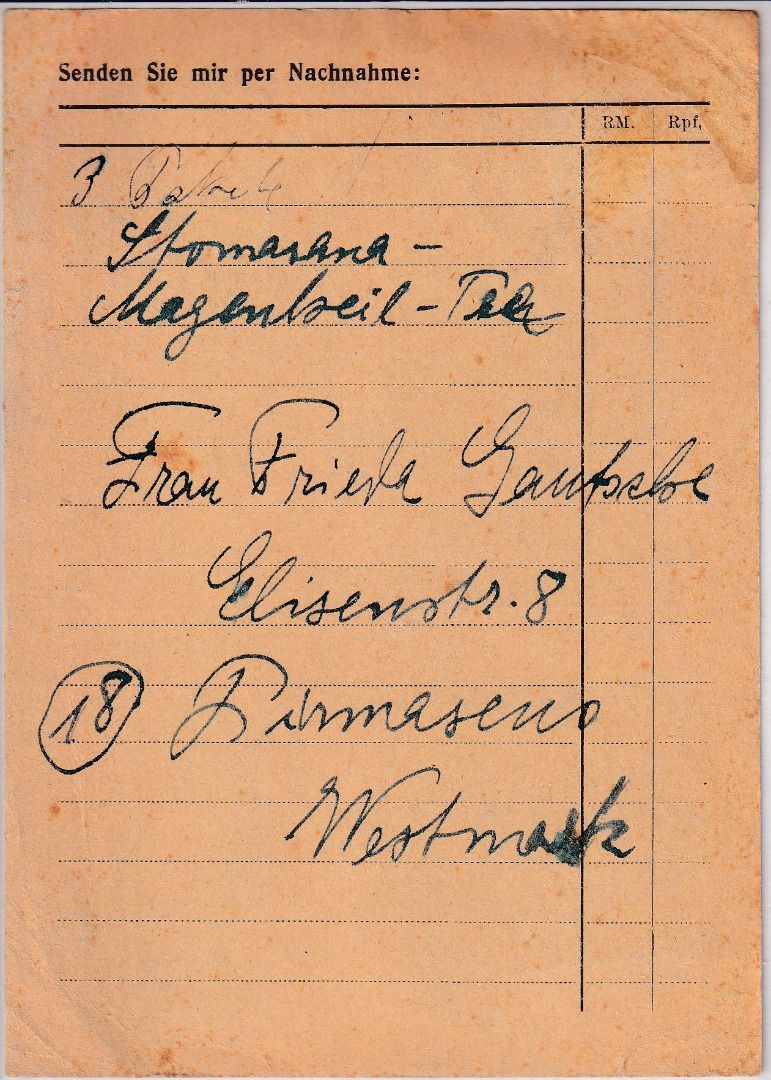 Senden Sie mir per Nachnahme:
RM. Rpf.
3 Pakete
Stomasana -
Magenheil - Tee
Frau Frieda
Elisenstr. 8
18 Pirmasens
Westmark